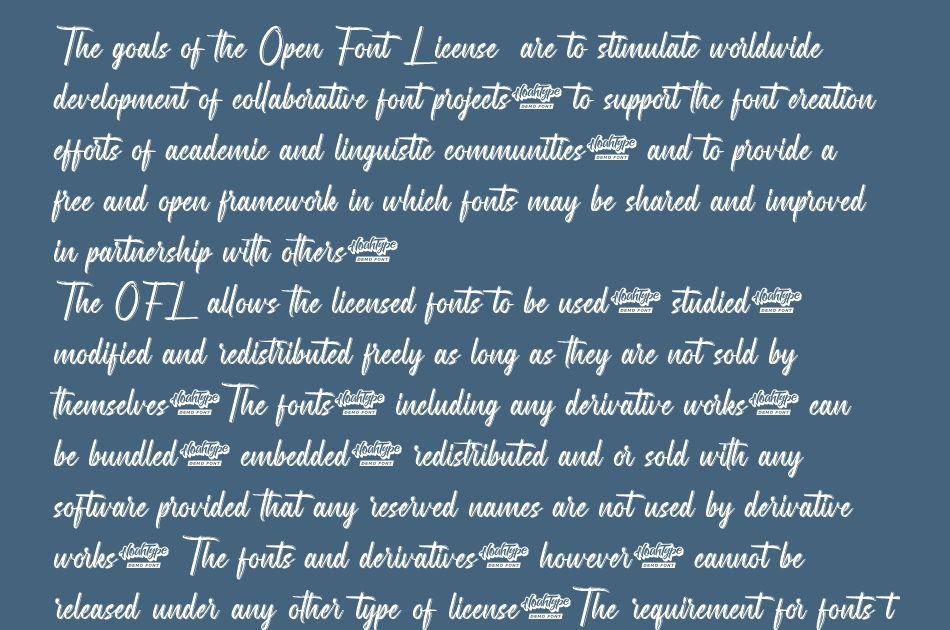 The goals of the Open Font License are to stimulate worldwide
development of collaborative font projects Noahtype DEMO FONT to support the font creation
efforts of academic and linguistic communities Noahtype DEMO FONT and to provide a
free and open framework in which fonts may be shared and improved
in partnership with others Noahtype DEMO FONT
The OFL allows the licensed fonts to be used Noahtype DEMO FONT studied Noahtype DEMO FONT
modified and redistributed freely as long as they are not sold by
themselves Noahtype DEMO FONT The fonts Noahtype DEMO FONT including any derivative works Noahtype DEMO FONT can
be bundled Noahtype DEMO FONT embedded Noahtype DEMO FONT redistributed and or sold with any
software provided that any reserved names are not used by derivative
works Noahtype DEMO FONT The fonts and derivatives Noahtype DEMO FONT however Noahtype DEMO FONT cannot be
released under any other type of license Noahtype DEMO FONT The requirement for fonts t